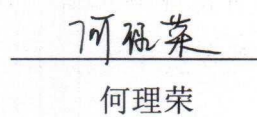 何理荣
何理荣